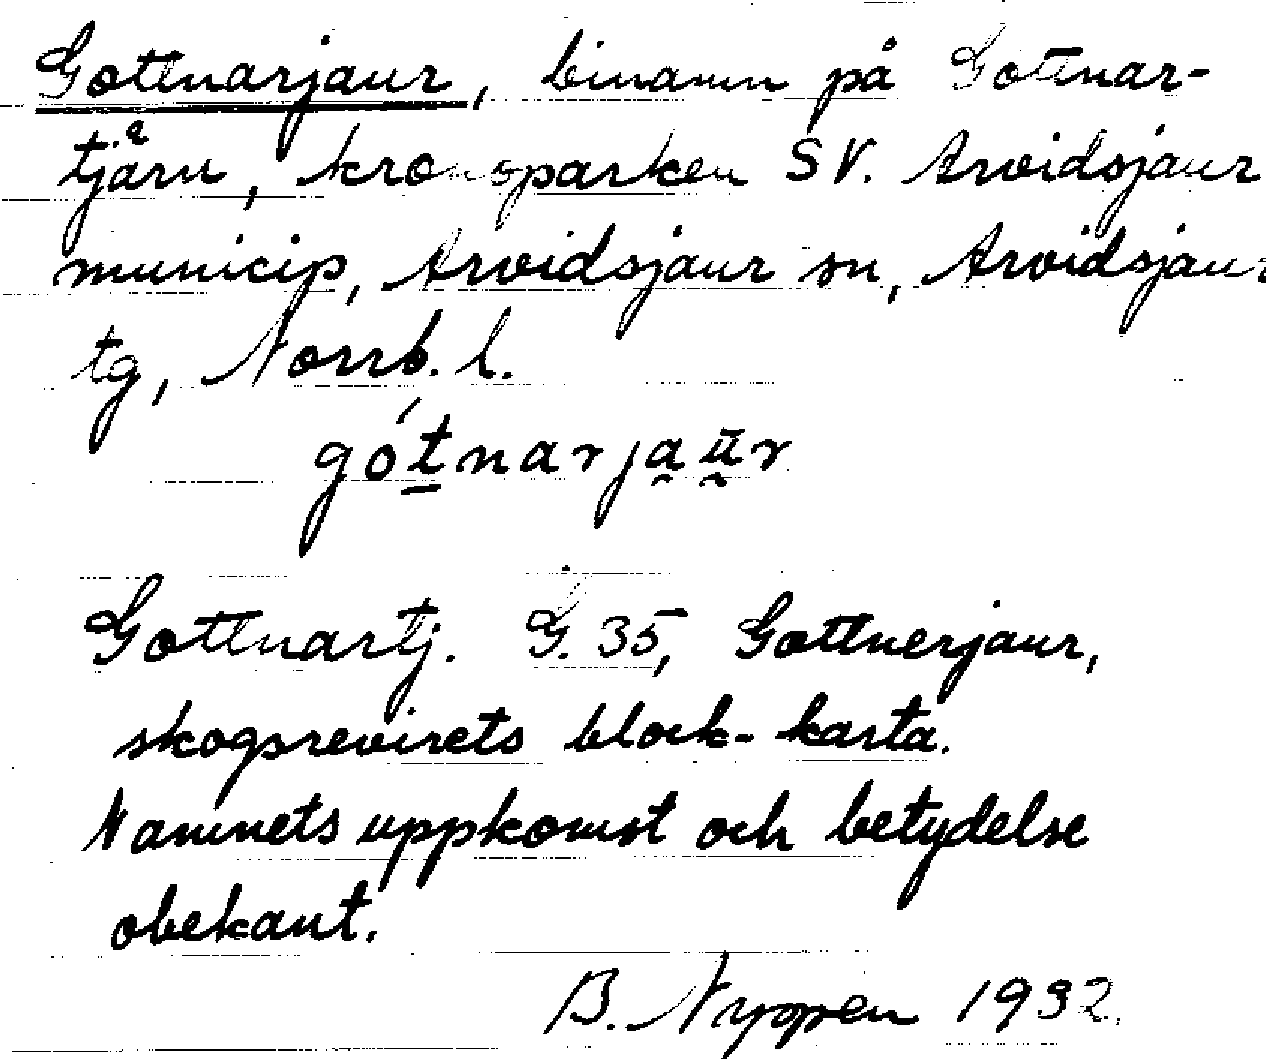 Gottnarjaur, binamn på Gottnar-
tjärn, kronoparken SV. Arvidsjaur
municip, Arvidsjaur sn, Arvidsjaur
tg, Norrb. l.
gótnarjau̯r
Gottnartj. G. 35, Gottnerjaur,
skogsrevirets block-karta.
Namnets uppkomst och betydelse
obekant.
B. Nyppen 1932.